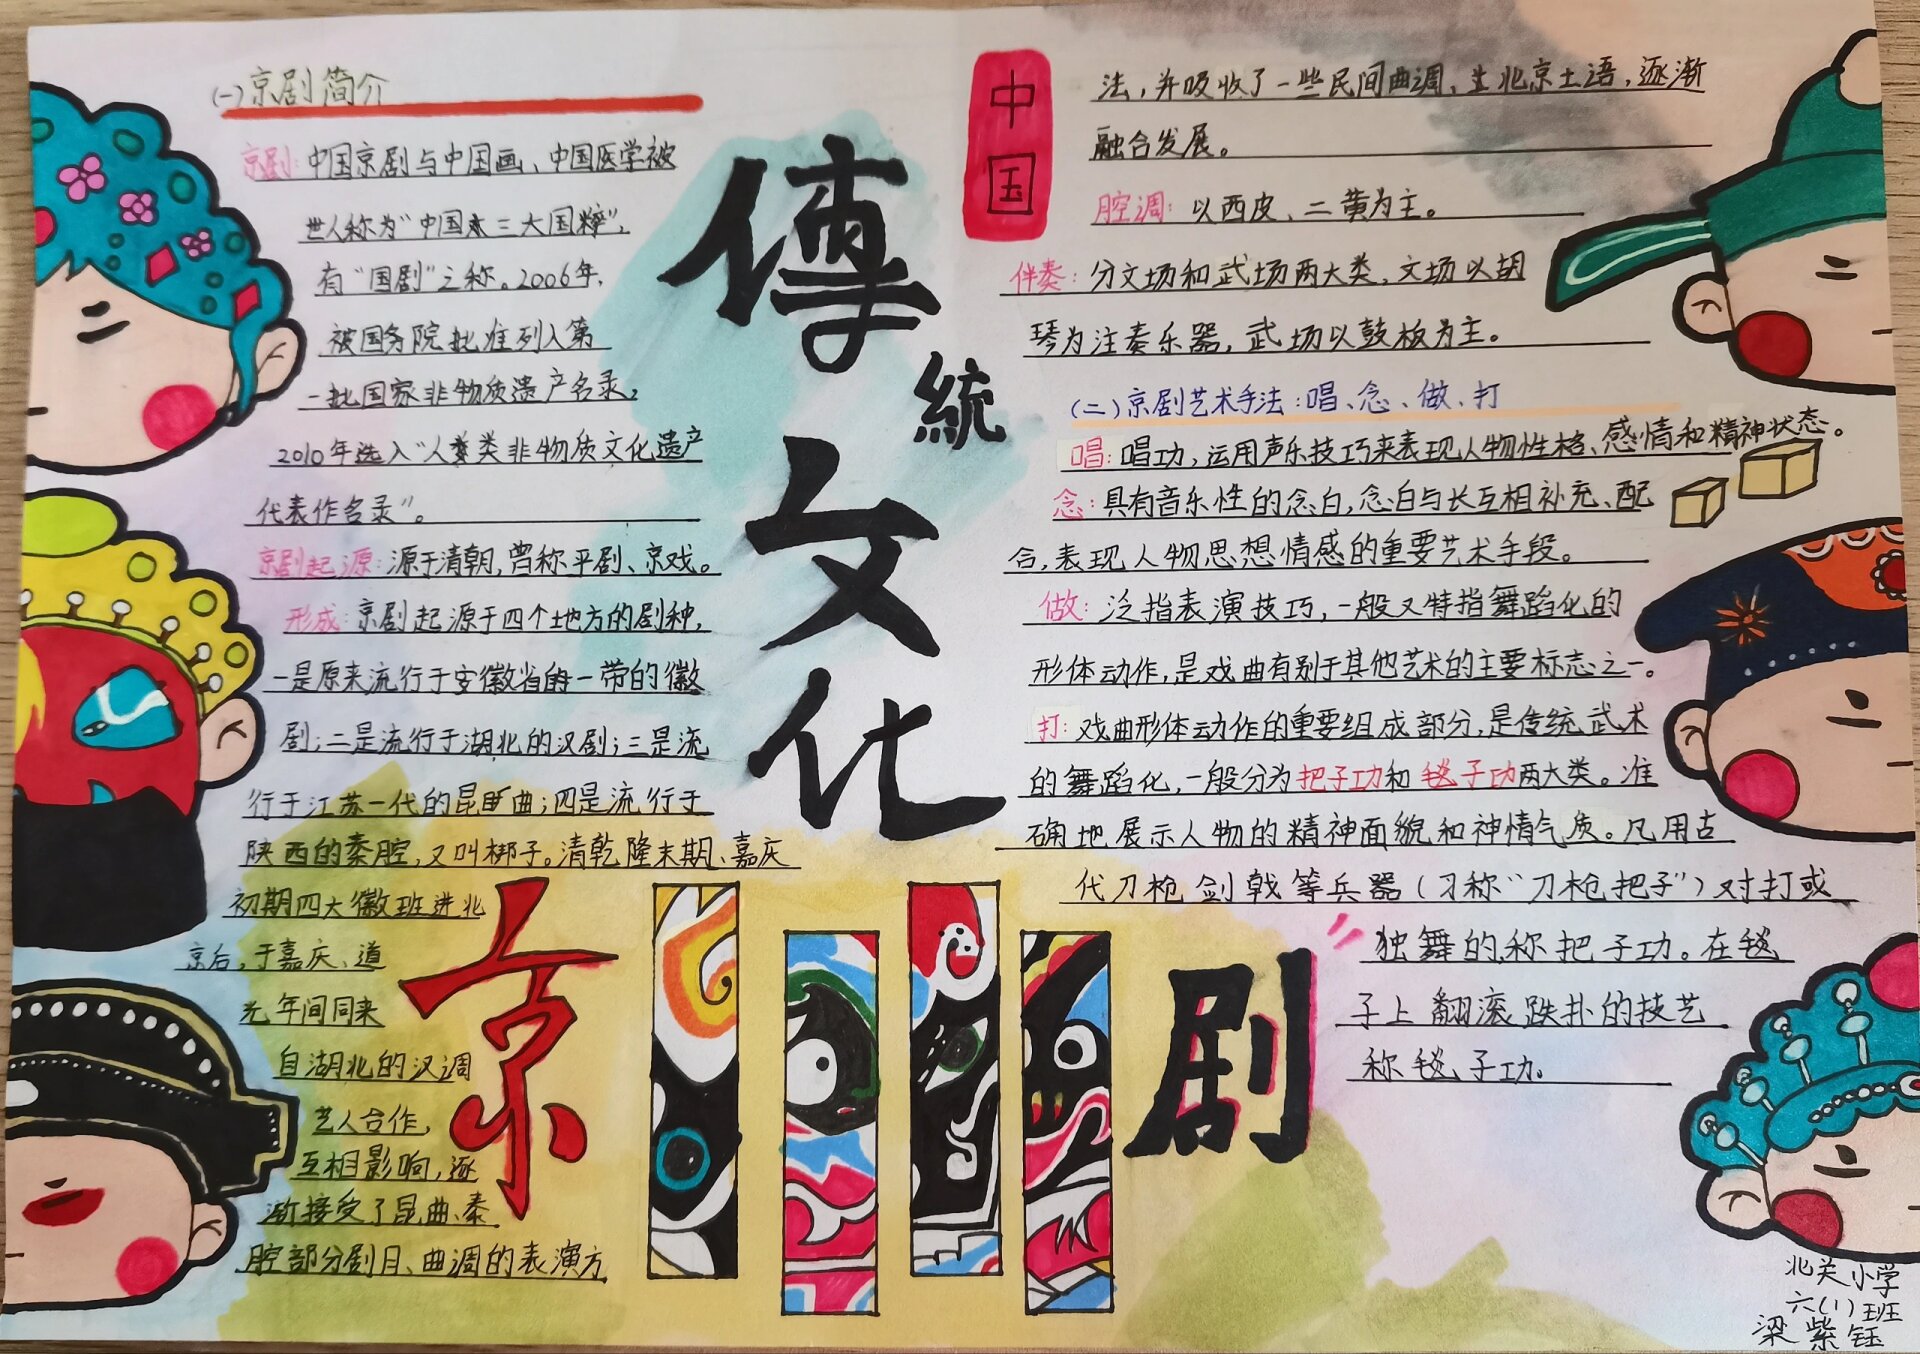 (一)京剧简介
京剧:中国京剧与中国画、中国医学被
世人称为“中国三大国粹”,
有“国剧”之称。2006年,
被国务院批准列入第
一批国家非物质遗产名录,
2010年选入“人类非物质文化遗产
代表作名录”。
京剧起源:源于清朝,曾称平剧、京戏。
形成:京剧起源于四个地方的剧种,
一是原来流行于安徽省一带的徽
剧;二是流行于湖北的汉剧;三是流
行于江苏一代的昆曲;四是流行于
陕西的秦腔,又叫梆子。清乾隆末期、嘉庆
初期四大徽班进北
京后,于嘉庆、道
光年间同来
自湖北的汉调
艺人合作,
互相影响,逐
渐接受了昆曲、秦
腔部分剧目、曲调的表演方
中国
傳
統
文
化
京
剧
法,并吸收了一些民间曲调,北京土语,逐渐
融合发展。
腔调:以西皮、二黄为主。
伴奏:分文场和武场两大类,文场以胡
琴为注奏乐器,武场以鼓板为主。
(二)京剧艺术手法:唱、念、做、打
唱:唱功,运用声乐技巧来表现人物性格、感情和精神状态。
念:具有音乐性的念白,念白与长互相补充、配
合,表现人物思想情感的重要艺术手段。
做:泛指表演技巧,一般又特指舞蹈化的
形体动作,是戏曲有别于其他艺术的主要标志之一。
打:戏曲形体动作的重要组成部分,是传统武术
的舞蹈化,一般分为把子功和毯子功两大类。准
确地展示人物的精神面貌和神情气质。凡用古
代刀枪剑戟等兵器(习称“刀枪把子”)对打或
独舞的,称把子功。在毯
子上翻滚跌扑的技艺
称毯子功。
北关小学
六(1)班
梁紫钰